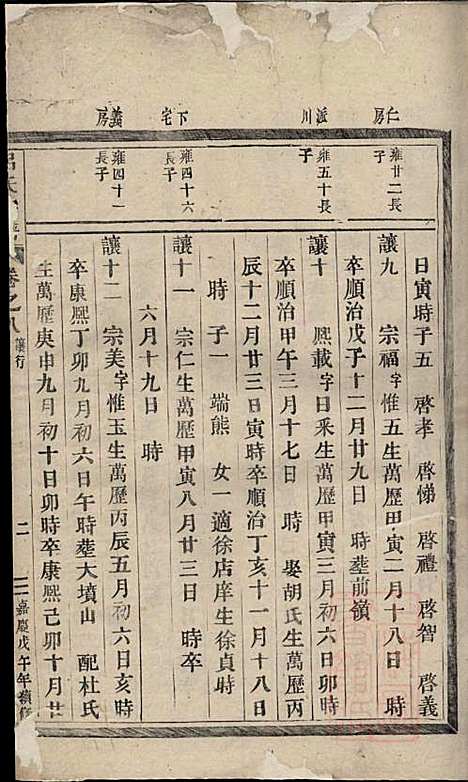 仁房
派川
下宅
義房
雍廿二長子
雍五十長子
雍四十六長子
雍四十一長子
日寅時子五 啓孝 啓悌 啓禮 啓智 啓義
讓九 宗福字惟五生萬歷甲寅二月十八日 時
卒順治戊子十二月廿九日 時塟前嶺
讓十 熙載字日釆生萬歷甲寅三月初六日卯時
卒順治甲午三月十七日 時 娶胡氏生萬歷丙
辰十二月廿三日寅時卒順治丁亥十一月十八日
時 子一 端熊 女一適徐店庠生徐貞時
讓十一 宗仁生萬歷甲寅八月廿三日 時卒
六月十九日 時
讓十二 宗美字惟玉生萬歷丙辰五月初六日亥時
卒康熙丁卯九月初六日午時塟大墳山 配杜氏
生萬歷庚申九月初十日卯時卒康熙己卯十月廿
卷之八 讓行 二 嘉慶戊午年續修